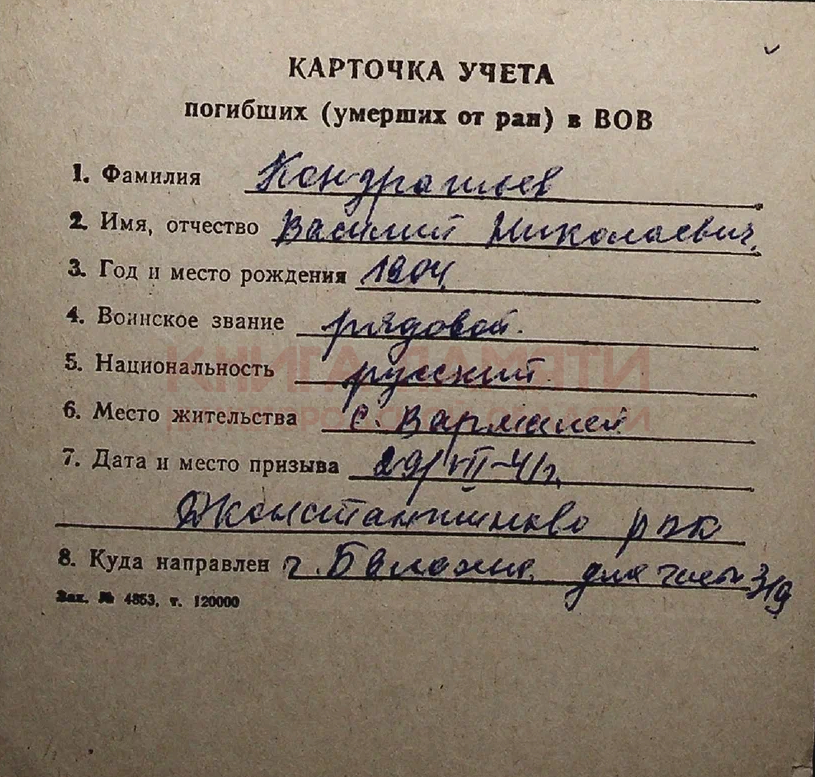 КАРТОЧКА УЧЕТА
погибших (умерших от ран) в ВОВ
1. Фамилия Кондратьев
2. Имя, отчество Василий Николаевич.
3. Год и место рождения 1904
4. Воинское звание рядовой.
5. Национальность русский.
КНИГА ПАМЯТИ
6. Место жительства с. Вармалей
7. Дата и место призыва 29/VII-41г.
Дконстантиново рвк
8. Куда направлен г. Балахна. для части 319
Зак. № 4853, т. 120000